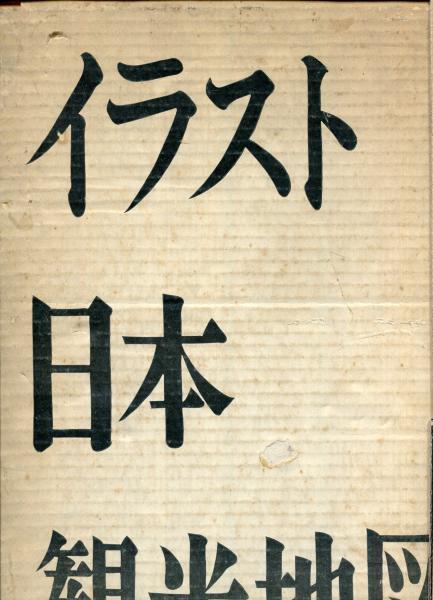 イラスト
日本
観光地図